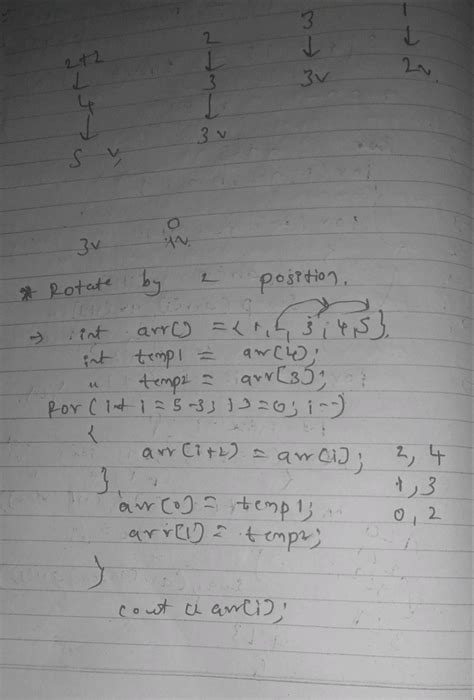 2+2 2 3 1
↓ ↓ ↓ ↓
4 3 3v 2v
↓ ↓
5 v, 3v
0
3v
* Rotate by 2 position.
→ int arr() = {1, 2, 3, 4, 5}.
int temp1 = arr(4);
" temp2 = arr[3];
for (int i = 5-3; i>=0; i--)
{
arr[i+2) = arr[i]; 2, 4
} 1, 3
arr[0] = temp1; 0, 2
arr[1] = temp2;
}
cout << arr[i];